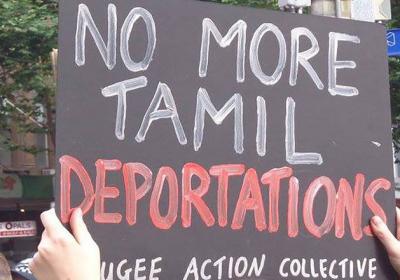 NO MORE
TAMIL
DEPORTATIONS
UGEE ACTION COLLECTIVE
OPALS